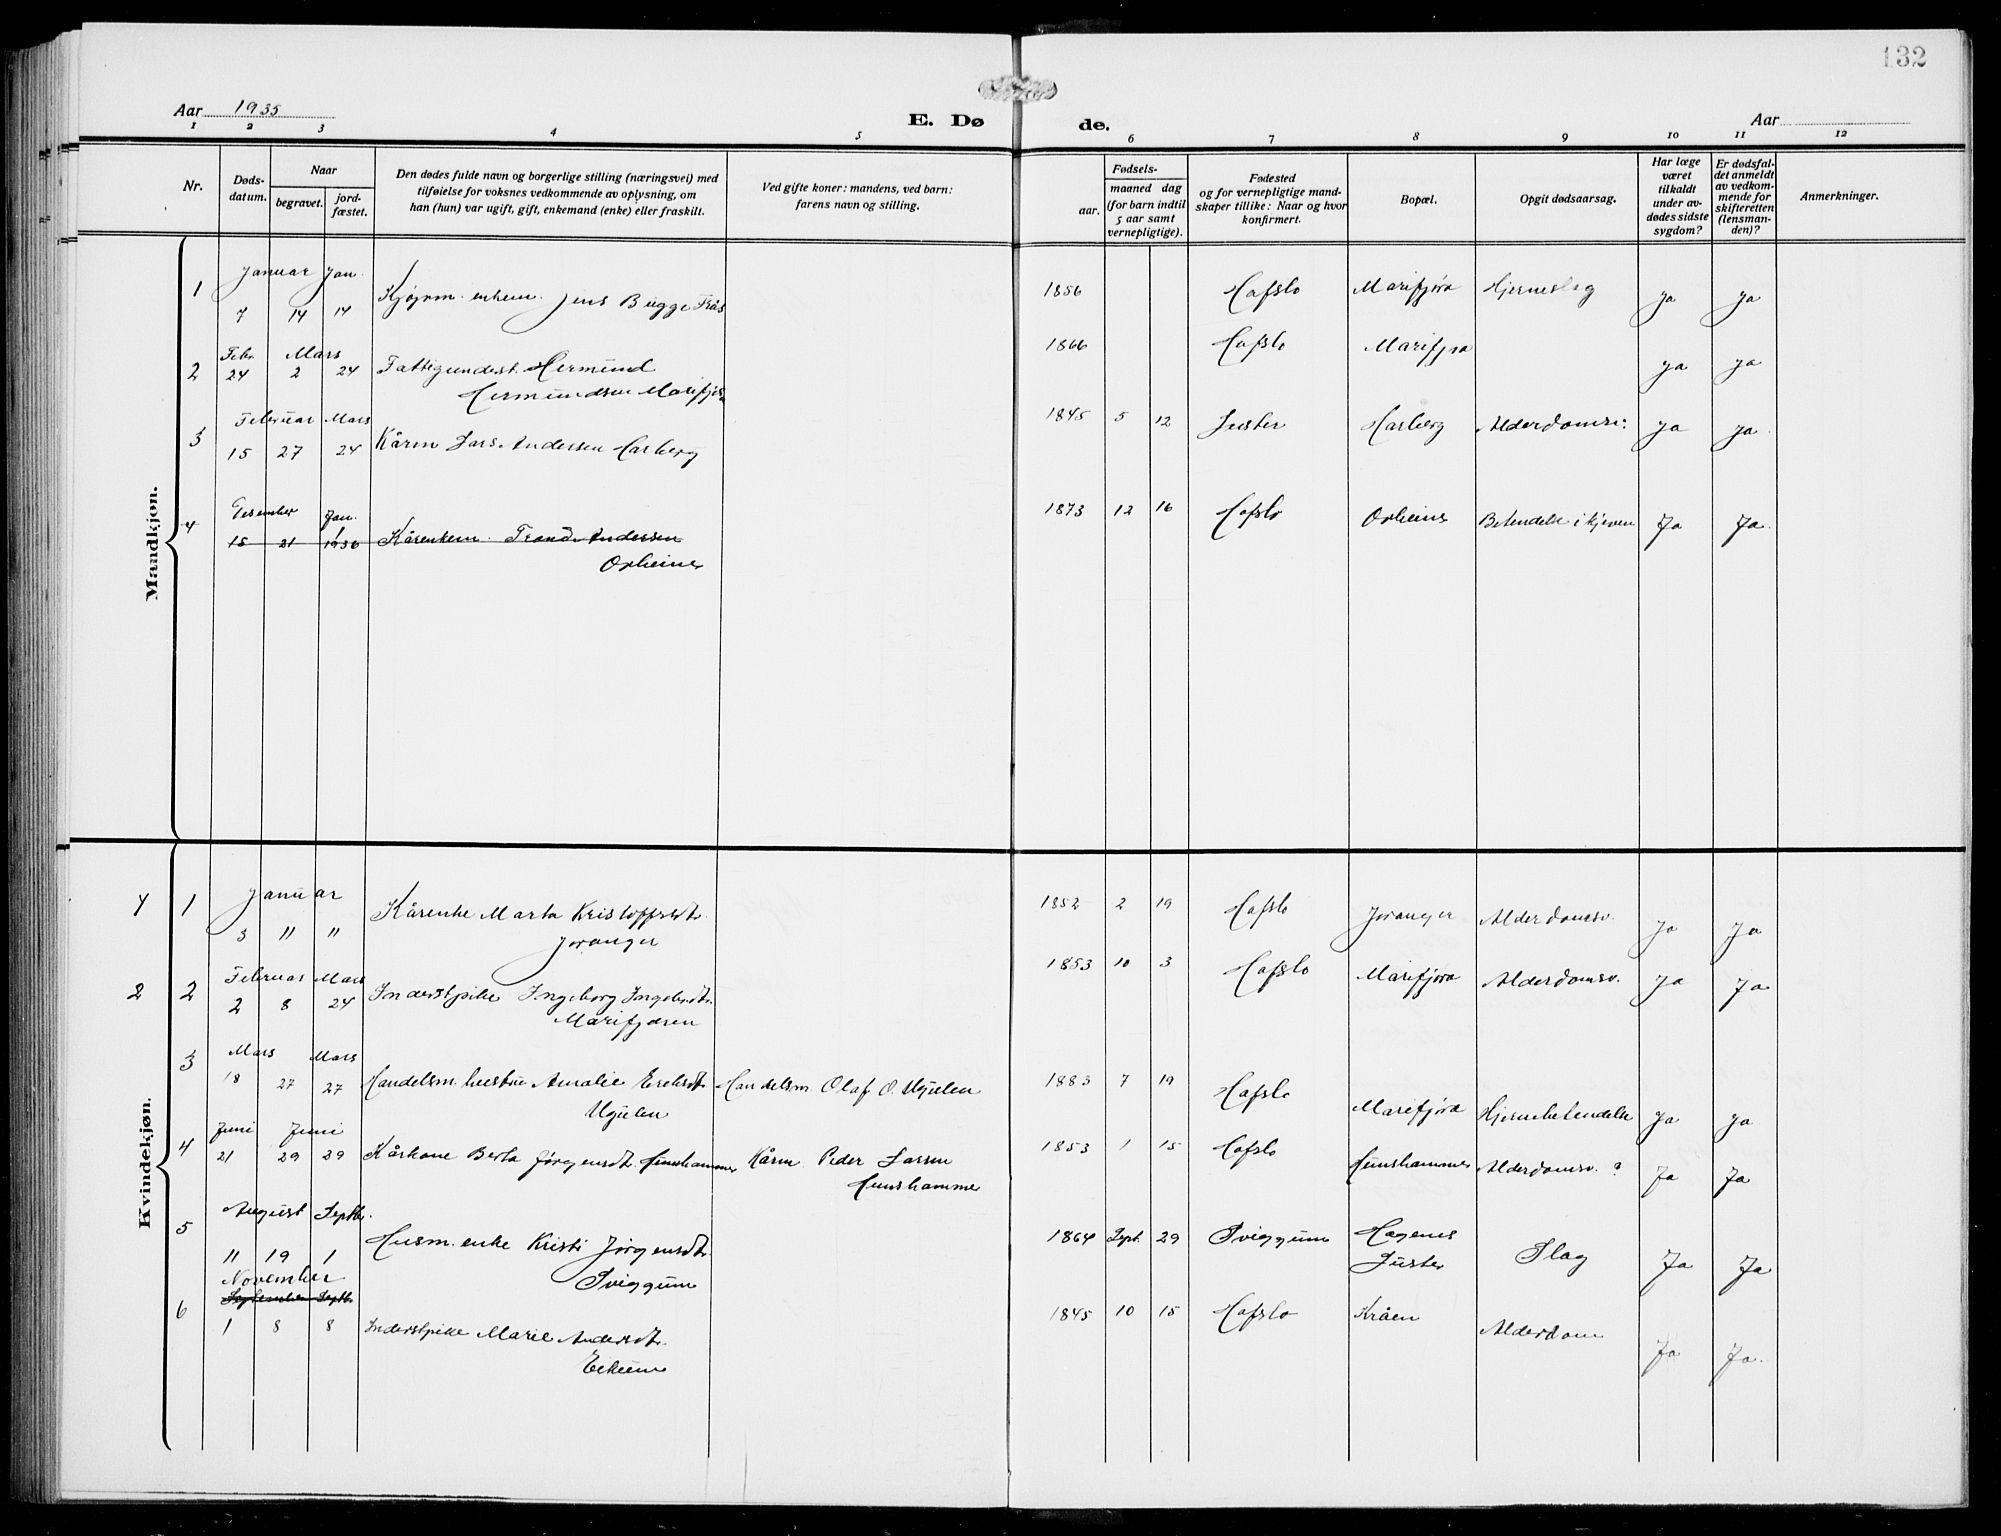 132
Aar 1935
E. Dø de.
Aar
1 2 3 4 5 6 7 8 9 10 11 12
Nr.
Døds-
datum.
Naar
begravet.
jord-
fæstet.
Den dødes fulde navn og borgerlige stilling (næringsvei) med
tilføielse for voksnes vedkommende av oplysning, om
han (hun) var ugift, gift, enkemand (enke) eller fraskilt.
Ved gifte koner: mandens, ved barn:
farens navn og stilling.
Fødsels-
aar.
maaned dag
(for barn indtil
5 aar samt
vernepligtige).
Fødested
og for vernepligtige mand-
skaper tillike: Naar og hvor
konfirmert.
Bopæl.
Opgit dødsaarsag.
Har læge
været
tilkaldt
under av-
dødes sidste
sygdom?
Er dødsfal-
det anmeldt
av vedkom-
mende for
skifteretten
(lensman-
den)?
Anmerkninger.
Mandkjøn.
Januar Jan.
1 7 14 14 Kjøpm. enkem. Jens Bugge 1856 Hafslo Marifjøra Hjerneslag Ja Ja
Febr. Mars
2 24 2 24 Fattigunderst. Hermund 1866 Hafslo Marifjøra Ja Ja
Hermundsen Marifjøren
Februar Mars
3 15 27 24 Kårm Lars Andersen Harberg 1845 5 12 Luster Harberg Alderdomsv. Ja Ja
Desember Jan.
4 15 21 1 1936 Kårenkem. Trond Andersen 1873 12 16 Hafslo Ørheim Betendelse i kjeven Ja Ja.
Kvindekjøn.
Januar
1 1 3 11 11 Kårenke Marta Kristoffersdt. 1852 2 19 Hafslo Joranger Alderdomsv. Ja Ja
Joranger
Februar Mars
2 2 2 8 24 Inderstpike Ingeborg Ingebr.dt. 1853 10 3 Hafslo Marifjøra Alderdomsv. Ja Ja
Marifjøren
Mars Mars
3 18 27 27 Handelsm. hustru Amalie Eriksdt. Handelsm Olaf O. Ugulen 1883 7 19 Hafslo Marifjøra Hjernebetendelse Ja Ja
Ugulen
Juni Juni
4 21 29 29 Kårkone Berta Jørgensdt. Hunshammer Kårm. Peder Larsen 1853 1 15 Hafslo Hunshammer Alderdomsv. ? Ja Ja
Hunshammer
August Septbr.
5 11 19 1 Husm. enke Kristi Jørgensdt. 1864 Sept. 29 Sviggum Høgenes Slag Ja Ja
Sviggum Luster
November
September Septbr.
6 1 8 8 Inderstpike Marie Andersdt. 1845 10 15 Hafslo Kråen Alderdom Ja Ja.
Eikum